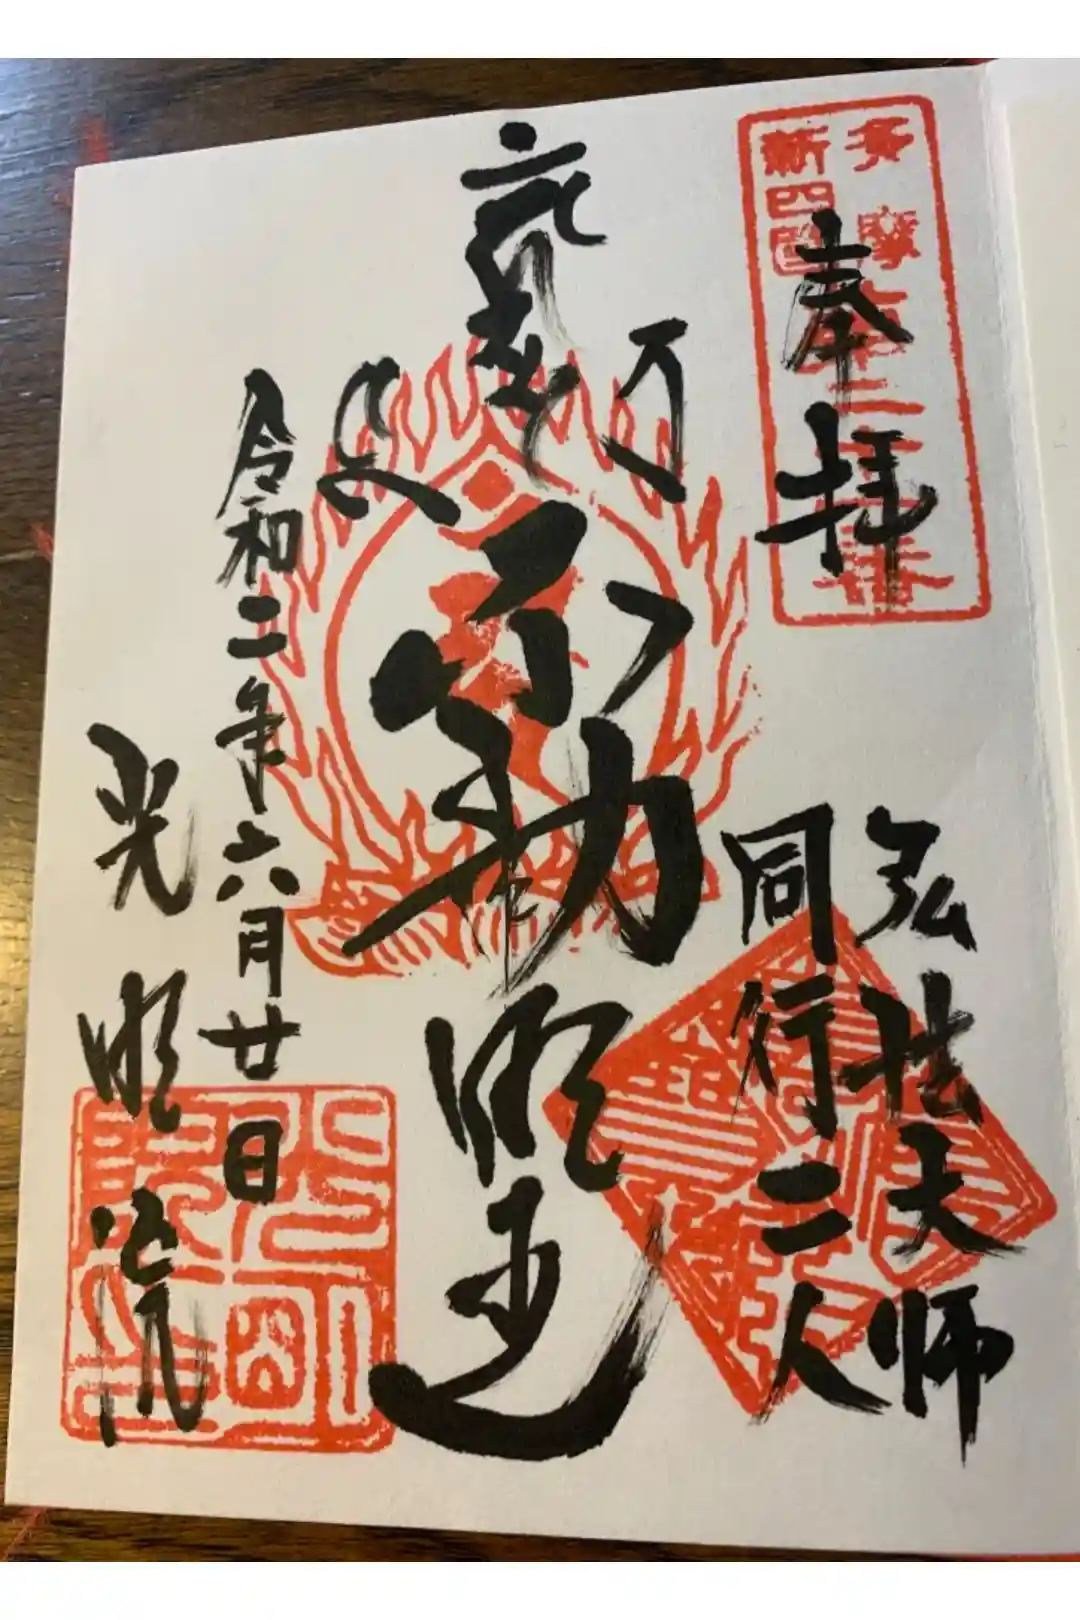 多摩
新四国
奉拝
弘法大師
同行二人
不動明王
令和二年六月廿日
光明院